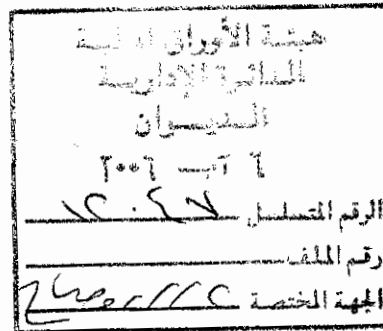 هيئة الأوراق المالية
الدائرة الإدارية
الديوان
٦ آب ٢٠٠٦
الرقم المتسلسل ١٢٠٤٧
رقم الملف
الجهة المختصة